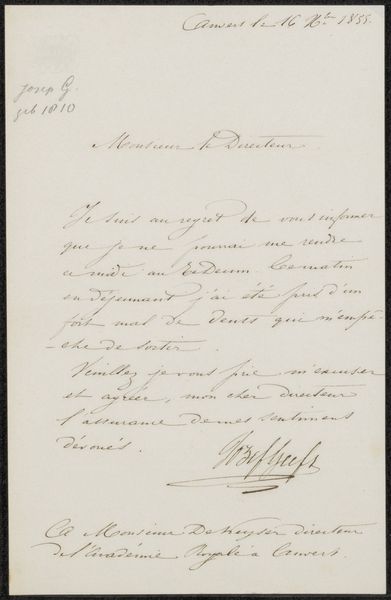 Anvers le 16 9bre 1855.
Josep G.
geb 1810
Monsieur le Directeur
Je suis au regret de vous informer
que je ne pourrai me rendre
ce midi au Tedeum. Ce matin
en déjeunant j'ai été pris d'un
fort mal de dents qui m'empê
-che de sortir.
Veuillez je vous prie m'excuser
et agréer, mon cher directeur
l'assurance de mes sentiments
dévoués.
Jozef Geefs
A Monsieur De Keyser directeur
de l'Académie Royale à Anvers.